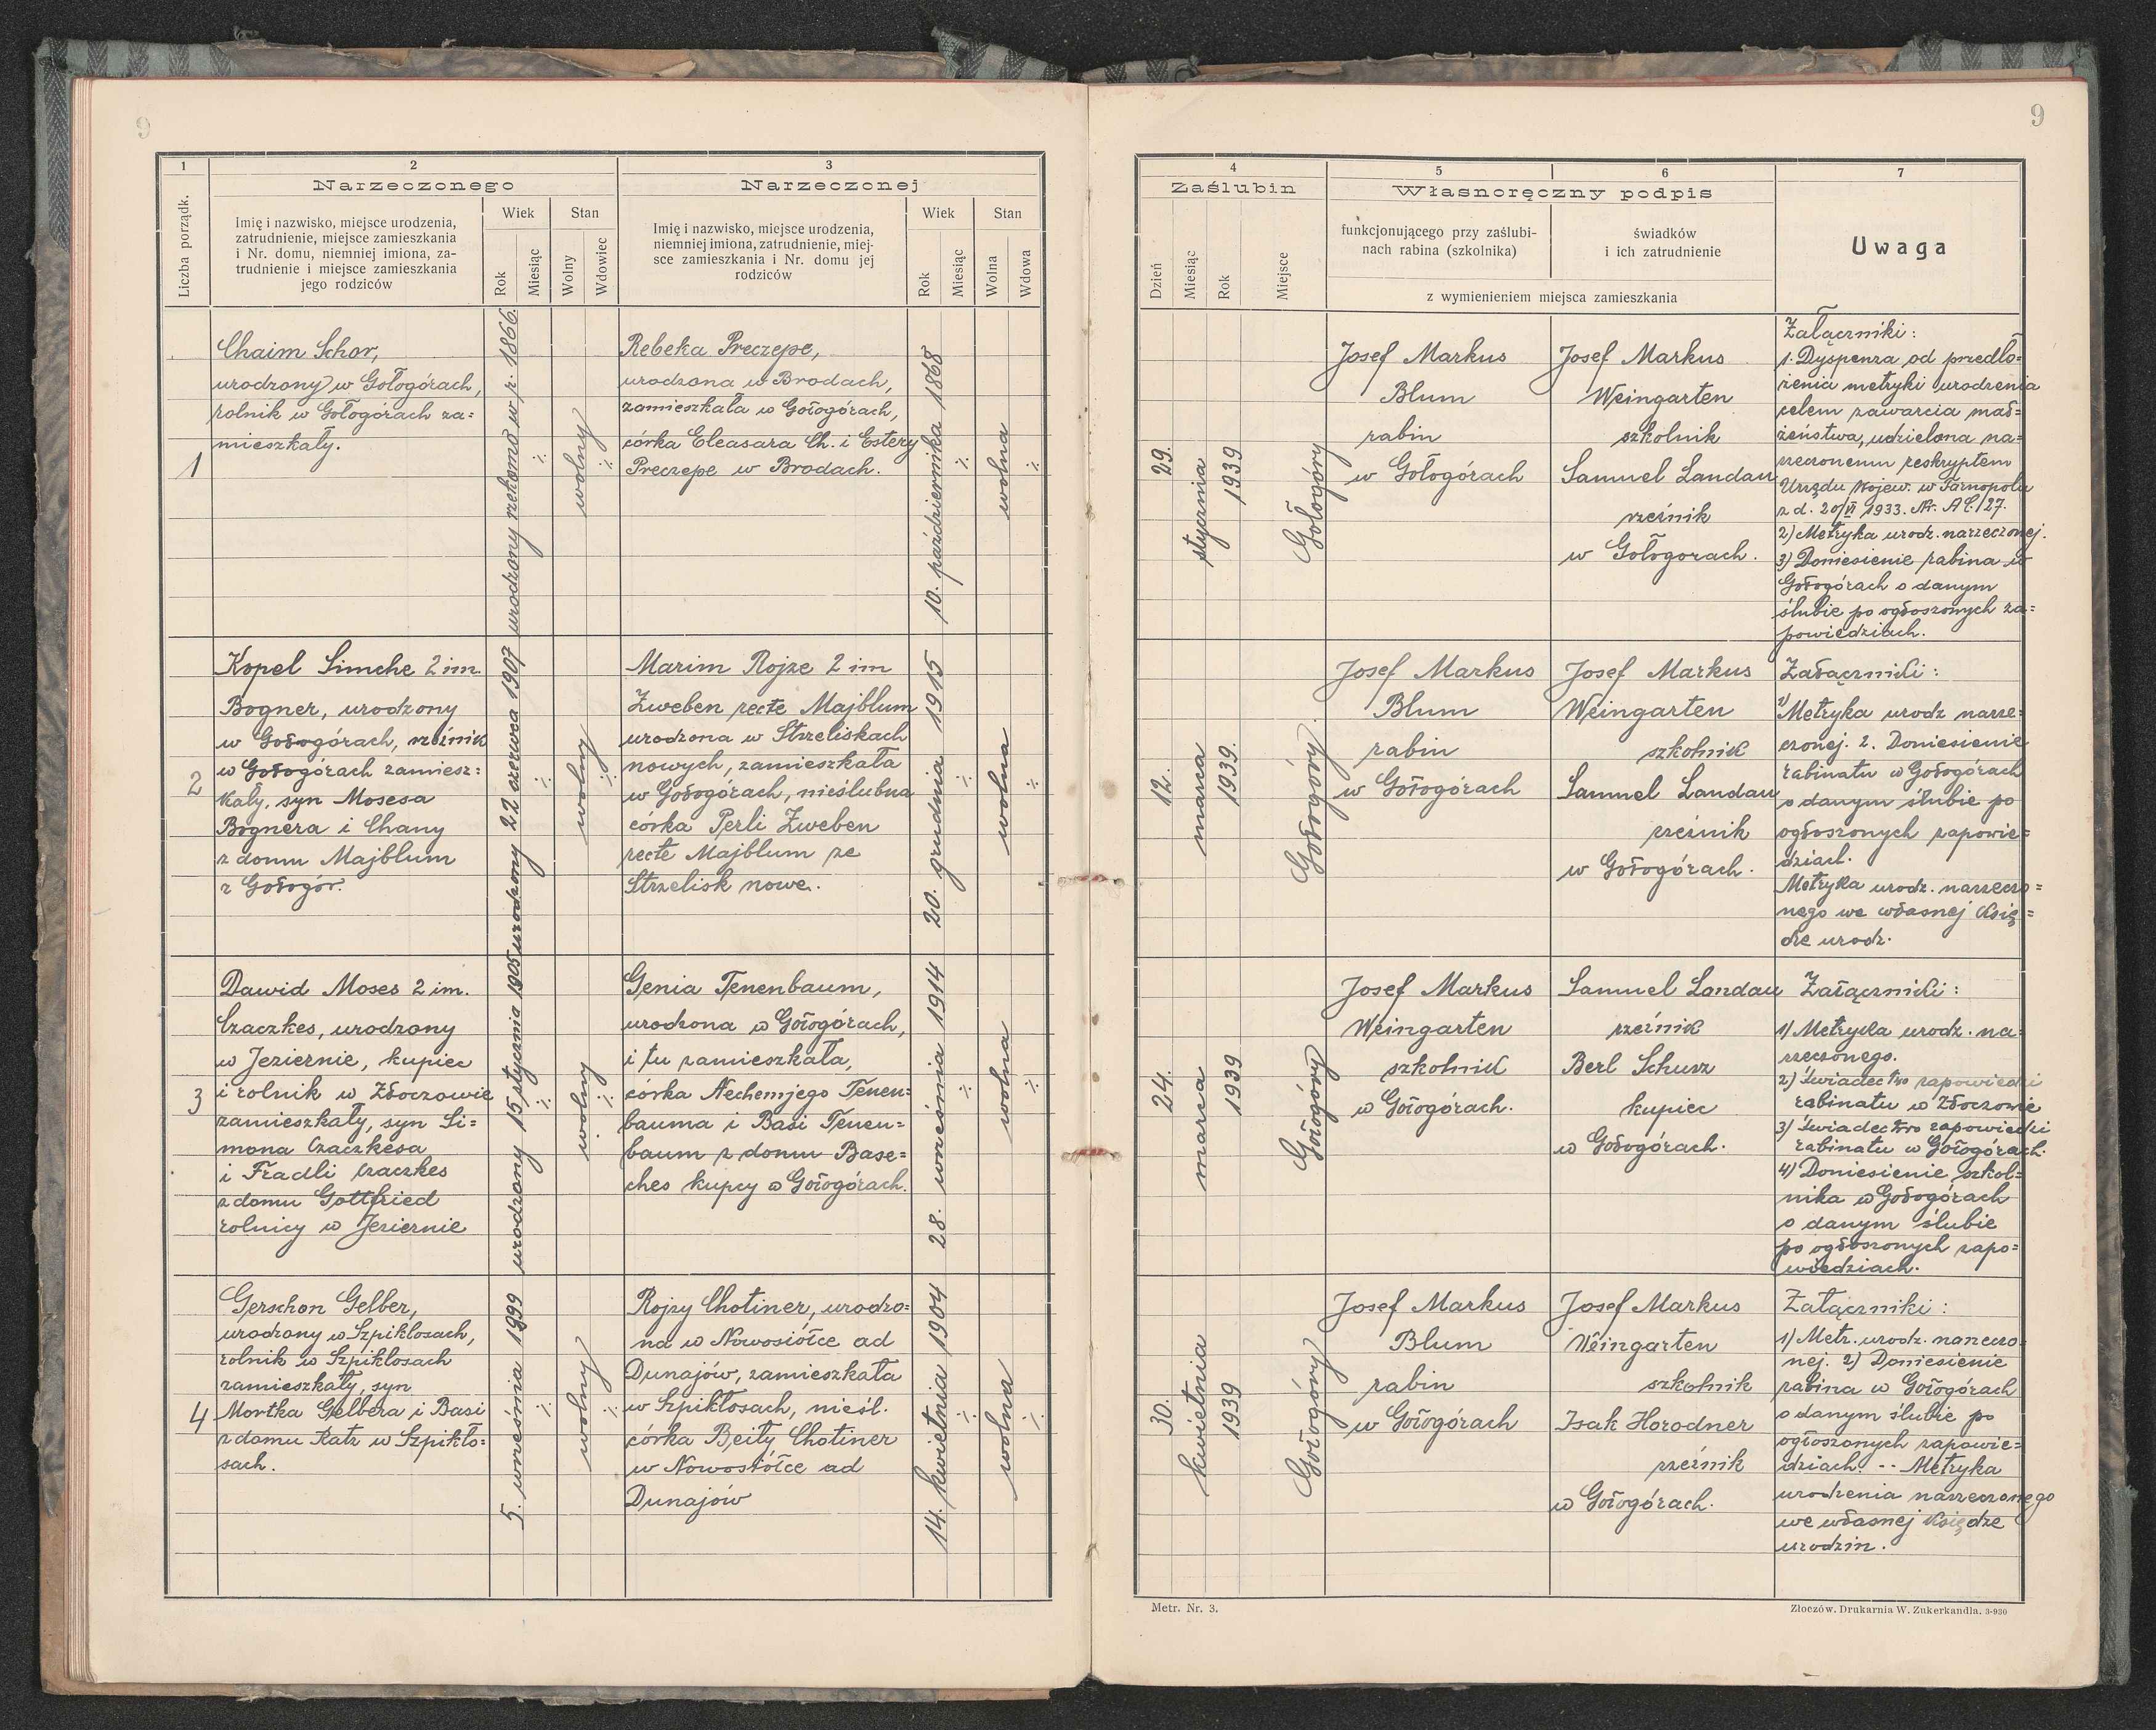 9
1
2
3
Narzeczonego
Narzeczonej
Liczba porządk.
Imię i nazwisko, miejsce urodzenia,
zatrudnienie, miejsce zamieszkania
i Nr. domu, niemniej imiona, za-
trudnienie i miejsce zamieszkania
jego rodziców
Wiek
Stan
Rok
Miesiąc
Wolny
Wdowiec
Imię i nazwisko, miejsce urodzenia,
niemniej imiona, zatrudnienie, miej-
sce zamieszkania i Nr. domu jej
rodziców
Wiek
Stan
Rok
Miesiąc
Wolna
Wdowa
1
Chaim Schor,
urodzony w Gołogórach,
rolnik w Gołogórach za=
mieszkały.
urodzony rzekomo w r. 1866.
wolny
Rebeka Preczepe,
urodzona w Brodach,
zamieszkała w Gołogórach,
córka Eleasara Ch. i Estery
Preczepe w Brodach.
10. października 1868
wolna
2
Kopel Simche 2 im.
Bogner, urodzony
w Gołogórach, rzeźnik
w Gołogórach zamiesz=
kały, syn Mosesa
Bognera i Chany
z domu Majblum
z Gołogór.
urodzony 22 czerwca 1907
wolny
Marim Rojze 2 im
Zweben recte Majblum
urodzona w Strzeliskach
nowych, zamieszkała
w Gołogórach, nieślubna
córka Perli Zweben
recte Majblum ze
Strzelisk nowe.
20. grudnia 1915
wolna
3
Dawid Moses 2 im.
Czaczkes, urodzony
w Jeziernie, kupiec
i rolnik w Złoczowie
zamieszkały, syn Si=
mona Czaczkesa
i Fradli Czaczkes
z domu Gottfried
rolnicy w Jeziernie
urodzony 15 stycznia 1905
wolny
Genia Tenenbaum,
urodzona w Gołogórach,
i tu zamieszkała,
córka Nechemjego Tenen=
bauma i Basi Tenen=
baum z domu Base=
ches kupcy w Gołogórach.
28. września 1914
wolna
4
Gerschon Gelber,
urodzony w Szpikłosach,
rolnik w Szpikłosach
zamieszkały, syn
Mortka Gelbera i Basi
z domu Katz w Szpikło=
sach.
5. września 1899
wolny
Rojzy Chotiner, urodzo=
na w Nowosiółce ad
Dunajów, zamieszkała
w Szpikłosach, nieśl.
córka Beity Chotiner
w Nowosiółce ad
Dunajów
14. kwietnia 1904
wolna
9
4
5
6
7
Zaślubin
Własnoręczny podpis
Uwaga
Dzień
Miesiąc
Rok
Miejsce
funkcjonującego przy zaślubi-
nach rabina (szkolnika)
świadków
i ich zatrudnienie
z wymienieniem miejsca zamieszkania
29.
stycznia
1939
Gołogóry
Josef Markus
Blum
rabin
w Gołogórach
Josef Markus
Weingarten
szkolnik
Samuel Landau
rzeźnik
w Gołogorach.
Załączniki:
1. Dyspenza od przedło=
żenia metryki urodzenia
celem zawarcia mał=
żeństwa, udzielona na=
rzeczonemu reskryptem
Urzędu Wojew. w Tarnopolu
z d. 20/VI 1933. Nr. A C. /27.
2) Metryka urodz. narzeczonej.
3) Doniesienie rabina w
Gołogórach o danym
ślubie po ogłoszonych za=
powiedziach.
12.
marca
1939.
Gołogóry.
Josef Markus
Blum
rabin
w Gołogórach
Josef Markus
Weingarten
szkolnik
Samuel Landau
rzeźnik
w Gołogórach.
Załączniki:
1) Metryka urodz narze=
czonej. 2. Doniesienie
rabinatu w Gołogórach
o danym ślubie po
ogłoszonych zapowie=
dziach.
Metryka urodz. narzeczo=
nego we własnej Księ=
dze urodz.
24.
marca
1939
Gołogóry
Josef Markus
Weingarten
szkolnik
w Gołogórach.
Samuel Landau
rzeźnik
Berl Schusz
kupiec
w Gołogórach.
Załączniki:
1) Metryka urodz. na=
rzeczonego.
2) Świadectwo zapowiedzi
rabinatu w Złoczowie
3) Świadectwo zapowiedzi
rabinatu w Gołogórach.
4) Doniesienie szkol=
nika w Gołogórach
o danym ślubie
po ogłoszonych zapo=
wiedziach.
30.
kwietnia
1939
Gołogóry
Josef Markus
Blum
rabin
w Gołogórach
Josef Markus
Weingarten
szkolnik
Isak Horodner
rzeźnik
w Gołogórach.
Załączniki:
1) Metr. urodz. narzeczo=
nej. 2) Doniesienie
rabina w Gołogórach
o danym ślubie po
ogłoszonych zapowie=
dziach. -- Metryka
urodzenia narzeczonego
we własnej Księdze
urodzin.
Metr. Nr. 3.
Złoczów. Drukarnia W. Zukerkandla. 3-930